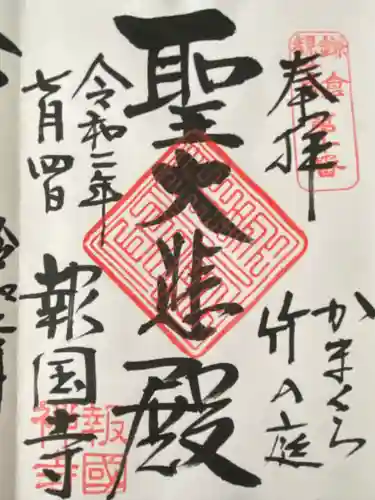 奉拝
かまくら
竹の庭
聖大悲殿
令和二年
七月四日
報国寺
鎌倉
観音
第十番
報國
禅寺